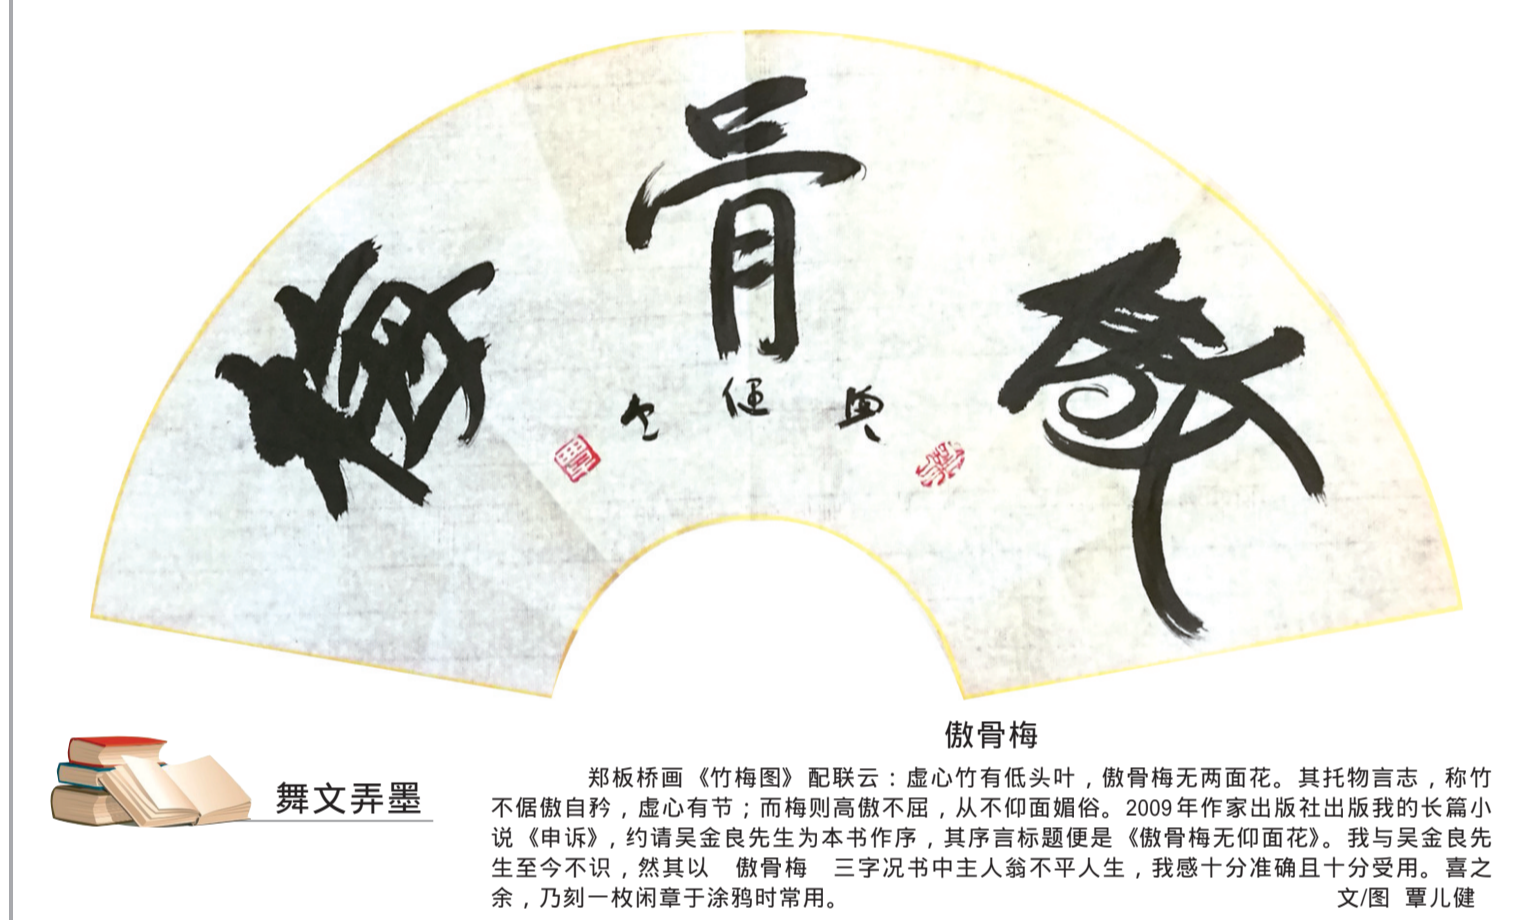 傲骨梅
傲骨梅
郑板桥画《竹梅图》配联云：虚心竹有低头叶，傲骨梅无两面花。其托物言志，称竹
不倨傲自矜，虚心有节；而梅则高傲不屈，从不仰面媚俗。2009年作家出版社出版我的长篇小
说《申诉》，约请吴金良先生为本书作序，其序言标题便是《傲骨梅无仰面花》。我与吴金良先
生至今不识，然其以 傲骨梅 三字况书中主人翁不平人生，我感十分准确且十分受用。喜之
余，乃刻一枚闲章于涂鸦时常用。
文/图 覃儿健
舞文弄墨